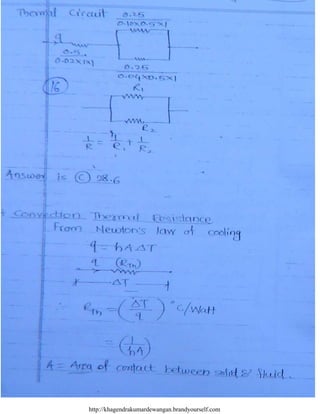 Thermal Circuit 0.25
0.10x0.5x1
q
0.5
0.02x1x1
0.25
0.04x0.5x1
16
R1
R2
1/R = 1/R1 + 1/R2
Answer is (C) 28.6
Convection Thermal Resistance
From Newton's law of cooling
q = hAΔT
q (RTh)
ΔT
∴ RTh = (ΔT/q) °C/Watt
= (1/hA)
A = Area of contact between solid & fluid.
http://khagendrakumardewangan.brandyourself.com